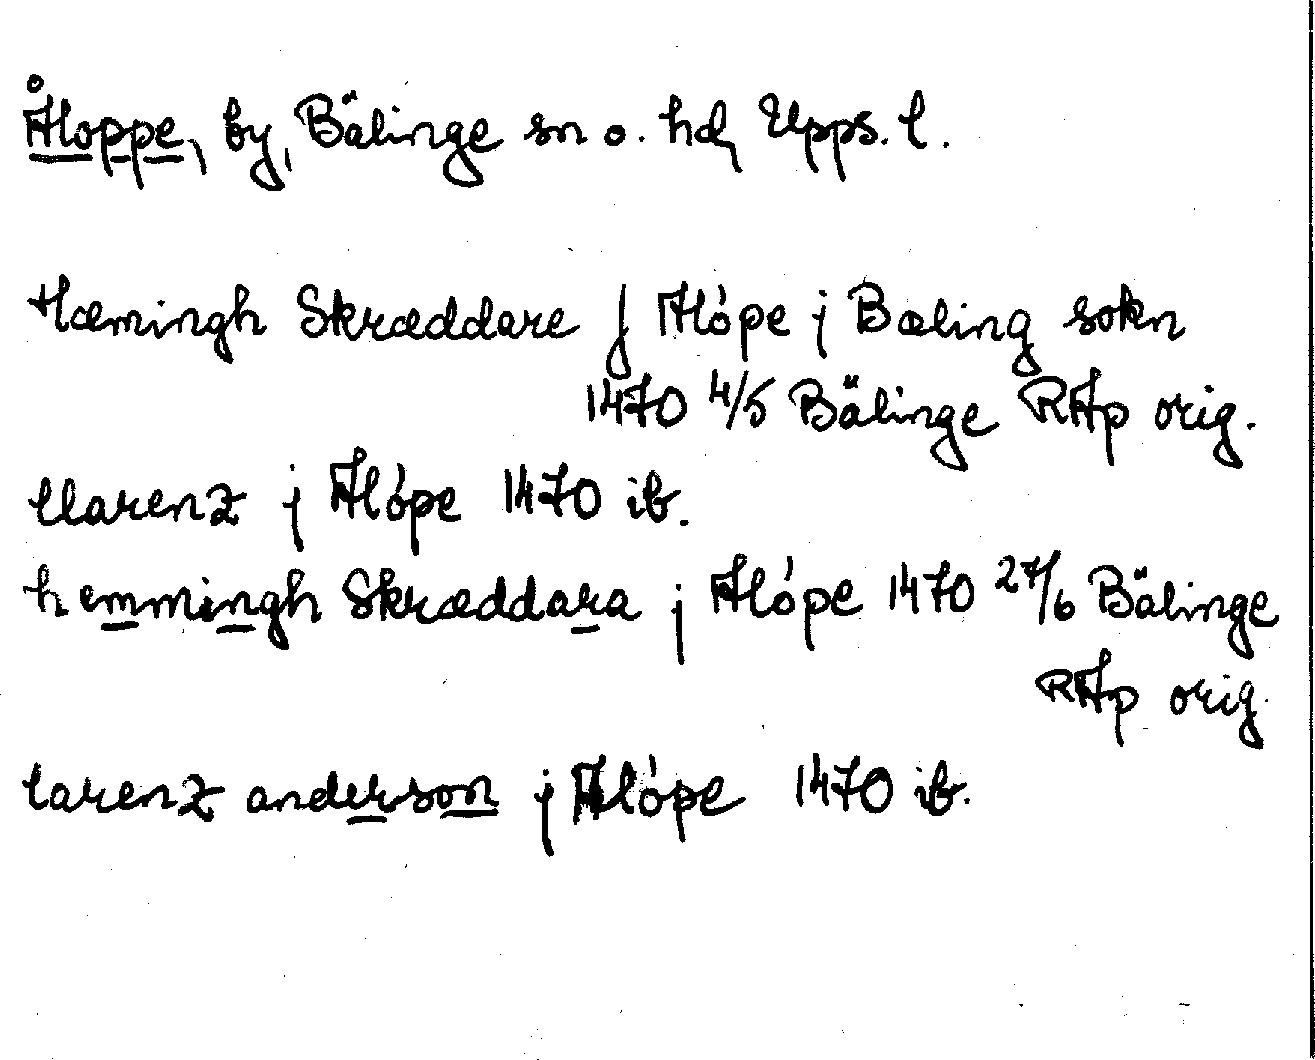 Åloppe, by, Bälinge sn o. hd, Upps. l.
Hæmingh Skræddare j Alópe j Bæling sokn
1470 4/5 Bälinge RAp orig.
llarenz j Alópe 1470 ib.
hemmingh Skræddara j Alópe 1470 27/6 Bälinge
RAp orig.
larenz anderson j Alópe 1470 ib.